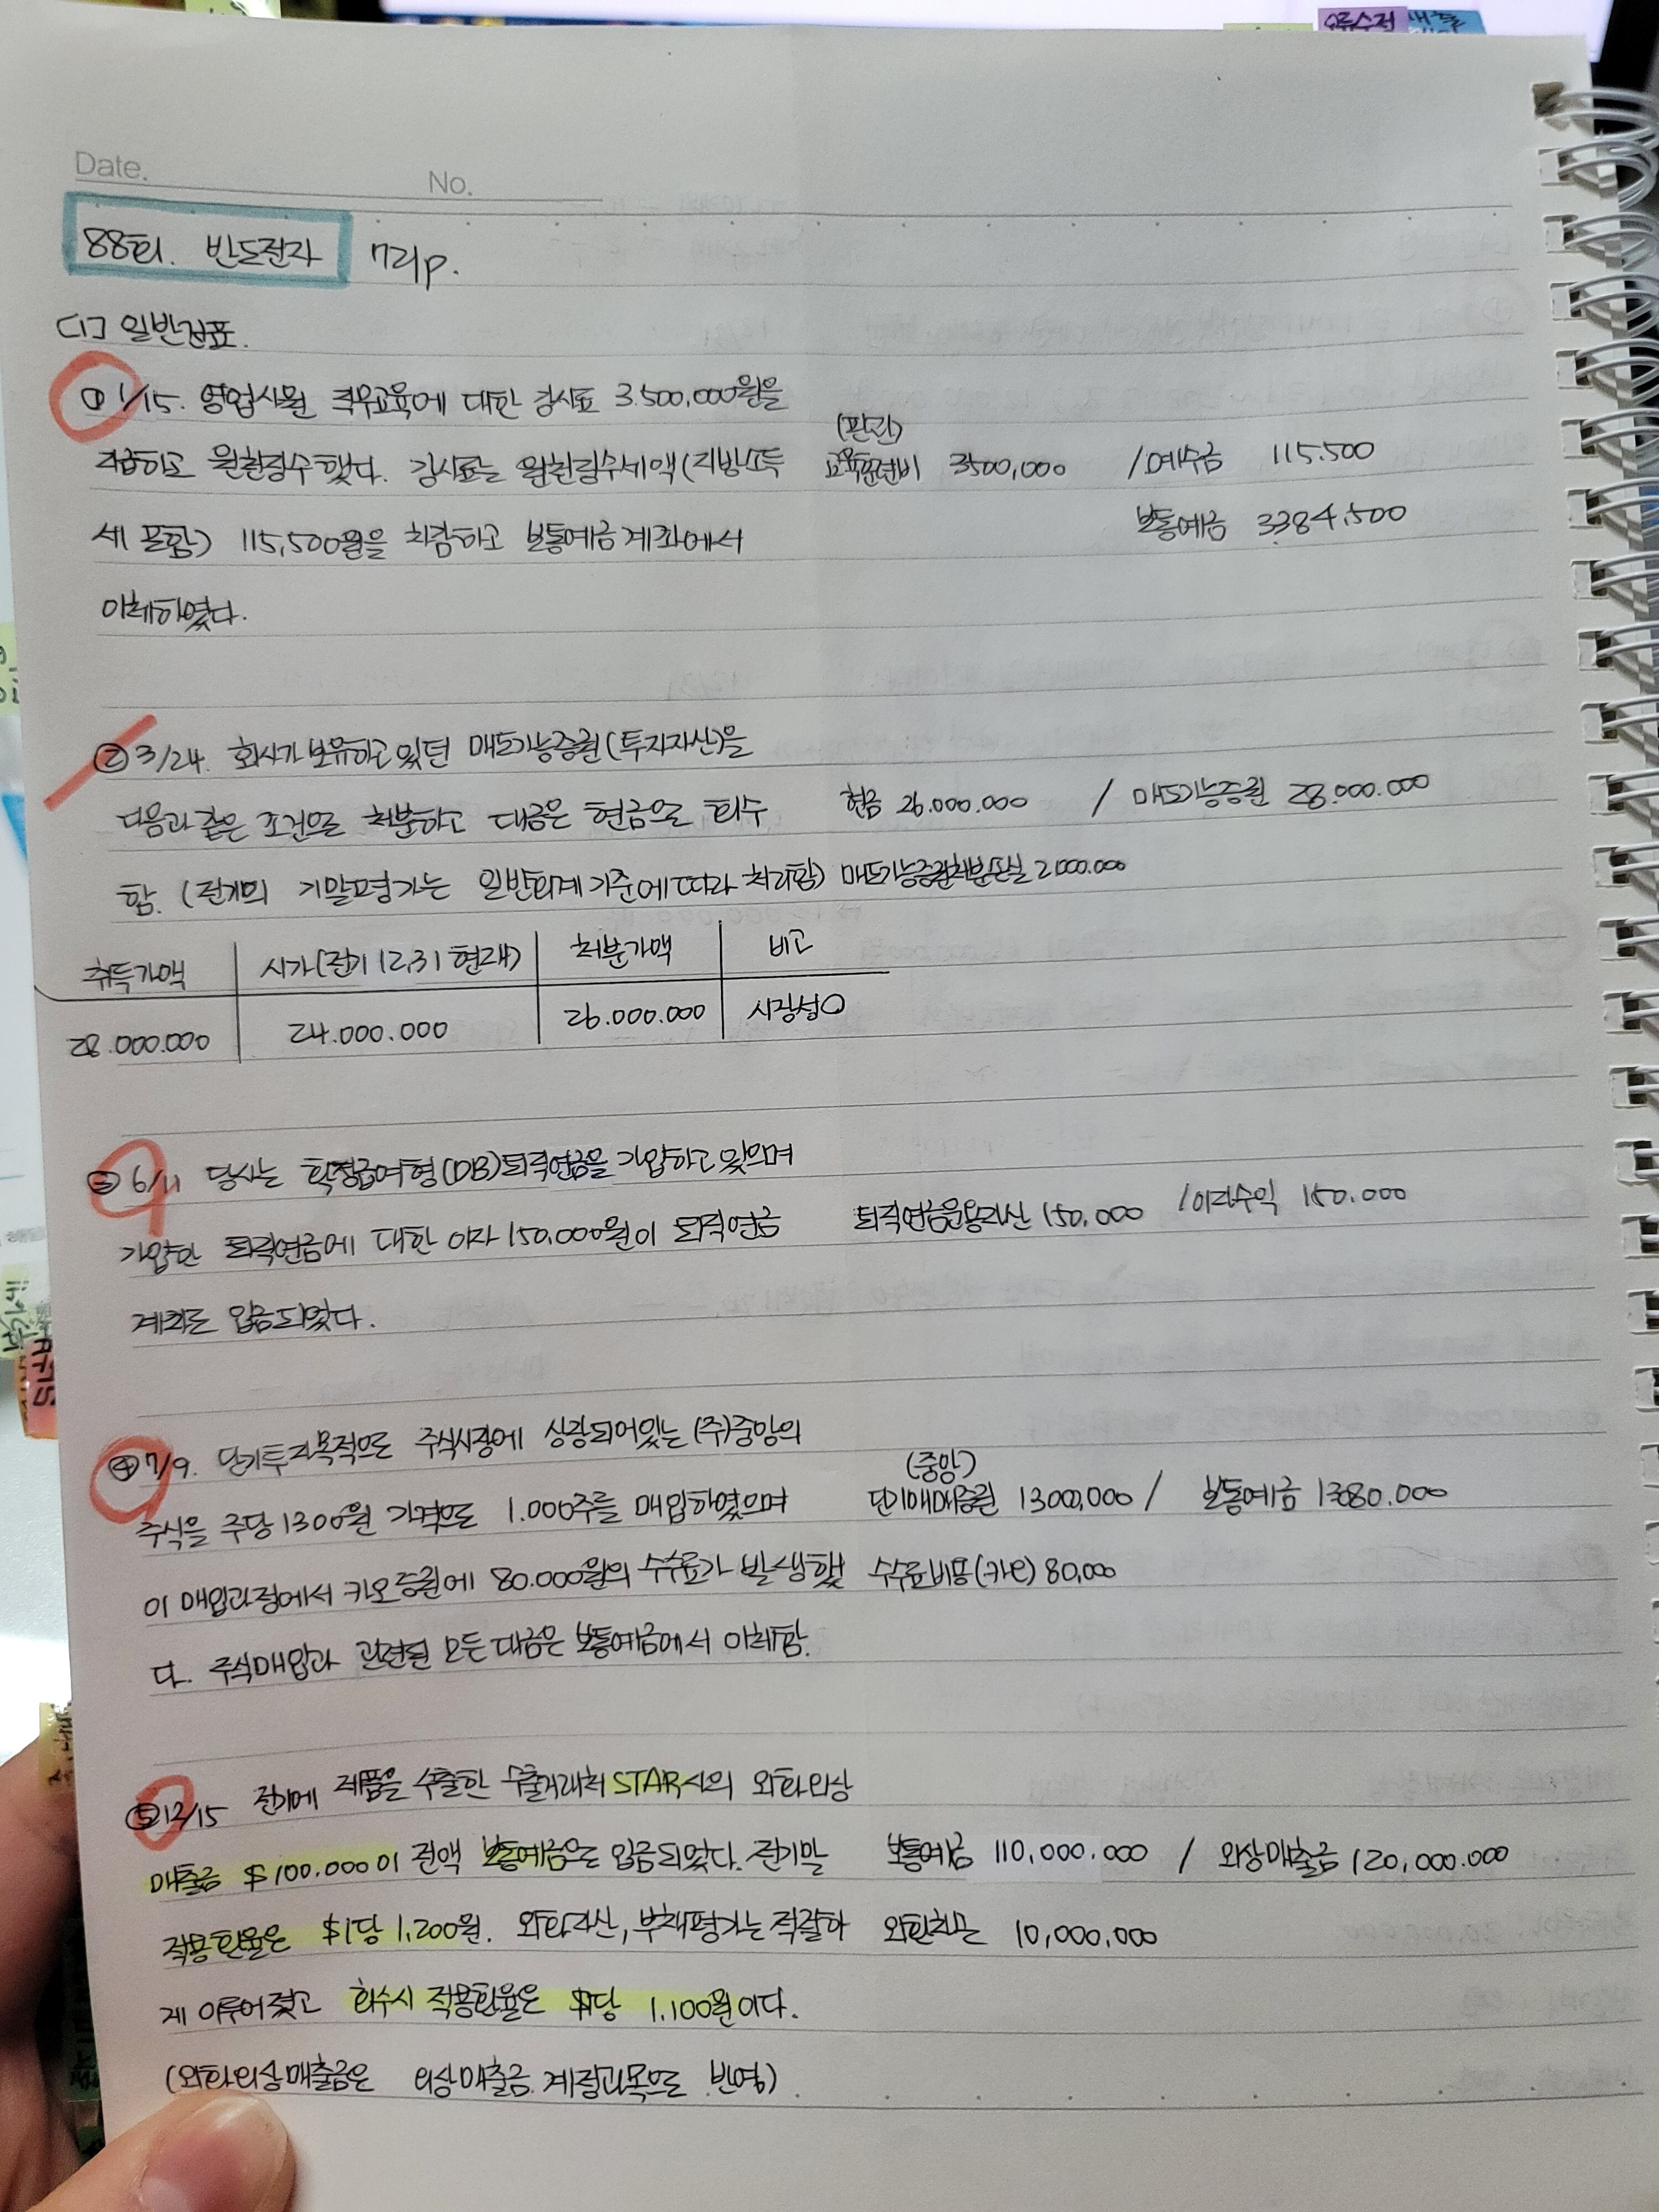 수저
Date.
No.
88회. 반도전자 721p.
[1] 일반전표.
① 1/15. 영업사원 직무교육에 대한 강사료 3.500,000원을
지급하고 원천징수했다. 강사료는 원천징수세액(지방소득
세 포함) 115,500원을 차감하고 보통예금계좌에서
이체하였다.
(판관)
교육훈련비 3500,000 / 예수금 115.500
보통예금 3384,500
② 3/24. 회사가 보유하고 있던 매도가능증권(투자자산)을
다음과 같은 조건으로 처분하고 대금은 현금으로 회수
함. (전기의 기말평가는 일반회계기준에 따라 처리함)
현금 26.000.000 / 매도가능증권 28.000.000
매도가능증권처분손실 2.000.000
취득가액 시가(전기 12,31 현재) 처분가액 비고
28.000.000 24.000.000 26.000.000 시장성○
③ 6/11 당사는 확정급여형(DB)퇴직연금을 가입하고 있으며
가입한 퇴직연금에 대한 이자 150,000원이 퇴직연금
계좌로 입금되었다.
퇴직연금운용자산 150,000 / 이자수익 150.000
④ 7/9. 단기투자목적으로 주식시장에 상장되어있는 (주)중앙의
주식을 주당 1300원 가격으로 1.000주를 매입하였으며
이 매입과정에서 카오증권에 80.000원의 수수료가 발생했
다. 주식매입과 관련된 모든 대금은 보통예금에서 이체함.
(중앙)
단기매매증권 1300,000 / 보통예금 1380.000
수수료비용(카오) 80,000
⑤ 12/15 전기에 제품을 수출한 수출거래처 STAR사의 외화외상
매출금 $100.000이 전액 보통예금으로 입금되었다. 전기말
적용환율은 $1당 1,200원. 외화자산, 부채평가는 적절하
게 이루어졌고 회수시 적용환율은 $1당 1.100원이다.
(외화외상매출금은 외상매출금 계정과목으로 반영)
보통예금 110,000.000 / 외상매출금 120,000.000
외환차손 10,000,000